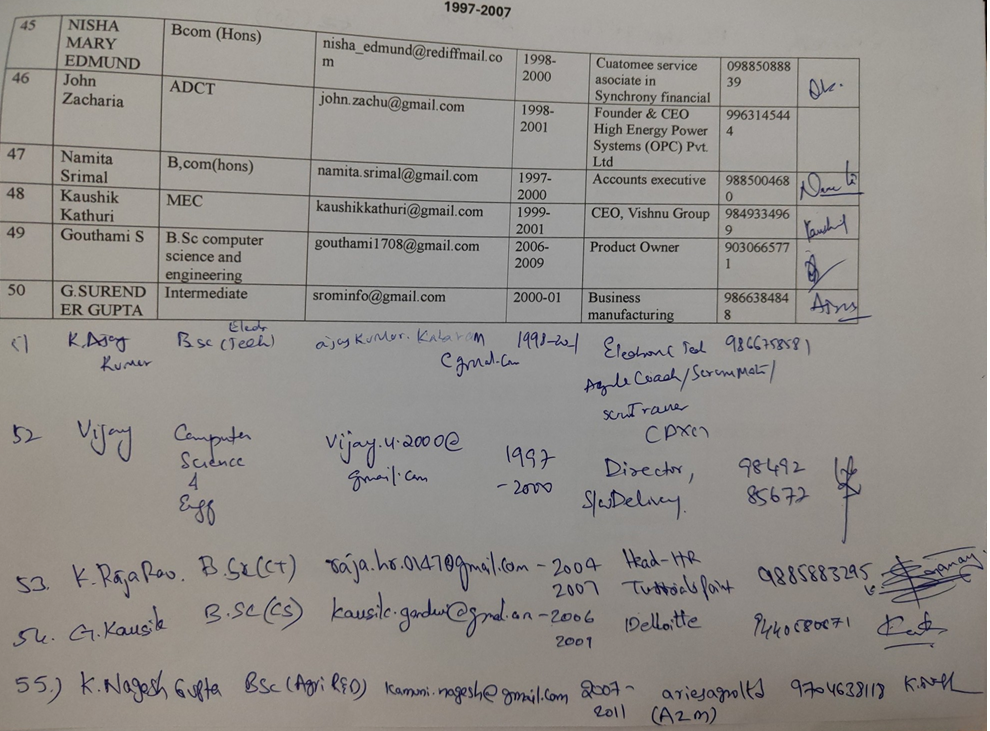 1997-2007
45 NISHA MARY EDMUND Bcom (Hons) nisha_edmund@rediffmail.com 1998-2000 Cuatomee service asociate in Synchrony financial 09885088839
46 John Zacharia ADCT john.zachu@gmail.com 1998-2001 Founder & CEO High Energy Power Systems (OPC) Pvt. Ltd 9963145444
47 Namita Srimal B,com(hons) namita.srimal@gmail.com 1997-2000 Accounts executive 9885004680
48 Kaushik Kathuri MEC kaushikkathuri@gmail.com 1999-2001 CEO, Vishnu Group 9849334969 Kaushik
49 Gouthami S B.Sc computer science and engineering gouthami1708@gmail.com 2006-2009 Product Owner 9030665771
50 G.SURENDER GUPTA Intermediate srominfo@gmail.com 2000-01 Business manufacturing 9866384848
K. Ajay Kumar B.Sc (Tech) 1998-2001
Agile Coach/
52 Vijay Computer Science & Engg Vijay.u.2000@gmail.com 1997-2000 Director, S/w Delivery. 98492 85672
53. K. Raja Rao. B.Sc(CT) raja.hr.0147@gmail.com - 2004 2007 Head-HR Tutorials Point 9885883295
54. G. Kausik B.SC(CS) 2006 2009 Delloitte
55.) K. Nagesh Gupta BSc(Agri R&D) kamuni.nagesh@gmail.com 2007-2011 (A2M) 9704638118